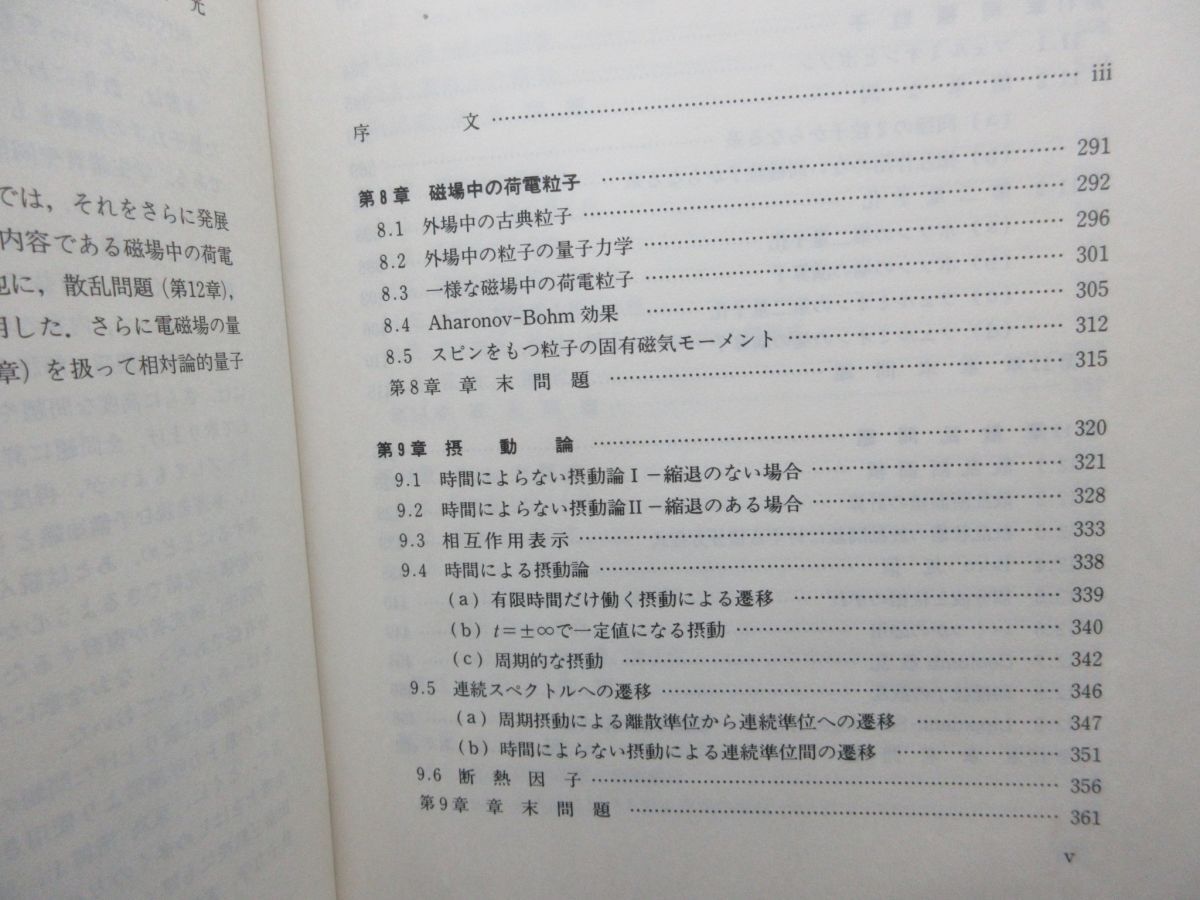 光
では，それをさらに発展
内容である磁場中の荷電
に，散乱問題（第12章），
した．さらに電磁場の量
章）を扱って相対論的量子
序 文 ……… iii
第8章 磁場中の荷電粒子 ……… 291
8.1 外場中の古典粒子 ……… 292
8.2 外場中の粒子の量子力学 ……… 296
8.3 一様な磁場中の荷電粒子 ……… 301
8.4 Aharonov-Bohm 効果 ……… 305
8.5 スピンをもつ粒子の固有磁気モーメント ……… 312
第8章 章 末 問 題 ……… 315
第9章 摂 動 論 ……… 320
9.1 時間によらない摂動論Ⅰ－縮退のない場合 ……… 321
9.2 時間によらない摂動論Ⅱ－縮退のある場合 ……… 328
9.3 相互作用表示 ……… 333
9.4 時間による摂動論 ……… 338
(a) 有限時間だけ働く摂動による遷移 ……… 339
(b) t=±∞で一定値になる摂動 ……… 340
(c) 周期的な摂動 ……… 342
9.5 連続スペクトルへの遷移 ……… 346
(a) 周期摂動による離散準位から連続準位への遷移 ……… 347
(b) 時間によらない摂動による連続準位間の遷移 ……… 351
9.6 断 熱 因 子 ……… 356
第9章 章 末 問 題 ……… 361
v